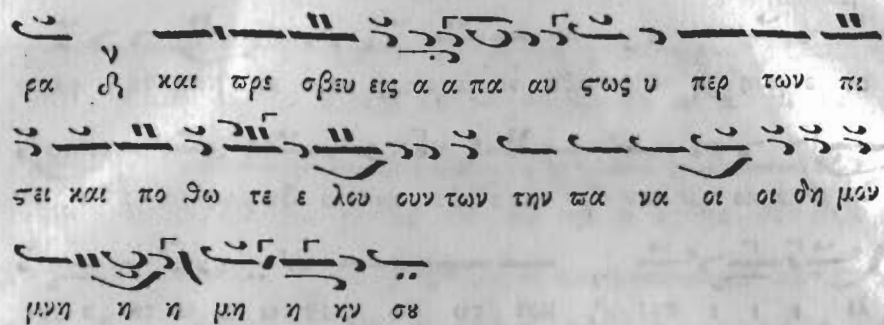 ρα ν δι και πρε σβευ εις α α πα αυ ϛως υ περ των πι
ϛει και πο θω τε ε λου ουν των την πα να οι οι δη μον
μνη η η μη η ην σȣ